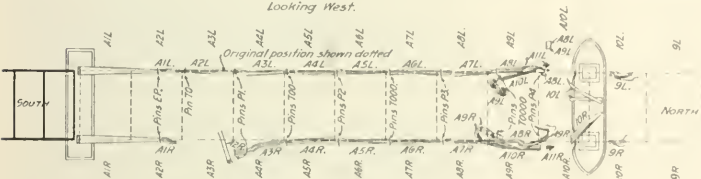 Looking West.
A1L A2L A3L A4L A5L A6L A7L. A8L. A9L A10L 10L 9L
A8L
A9L
Original position shown dotted
A1L. A2L A3L A4L A5L. A6L. A7L. A8L A11L
A10L A8L 9L.
A9L 10L
SOUTH Pins EP. Pin T0 Pins PL Pins T00 Pins P2 Pins T000 Pins P3 Pins T0000 Pins P4 NORTH
A9R 10R
A8R A9R
A1R A2R A3R A4R. A5R. A6R. A7R A10R A11R 9R
A1R A2R A3R A4R A5R A6R A7R A8R A9R A10R 10R 9R